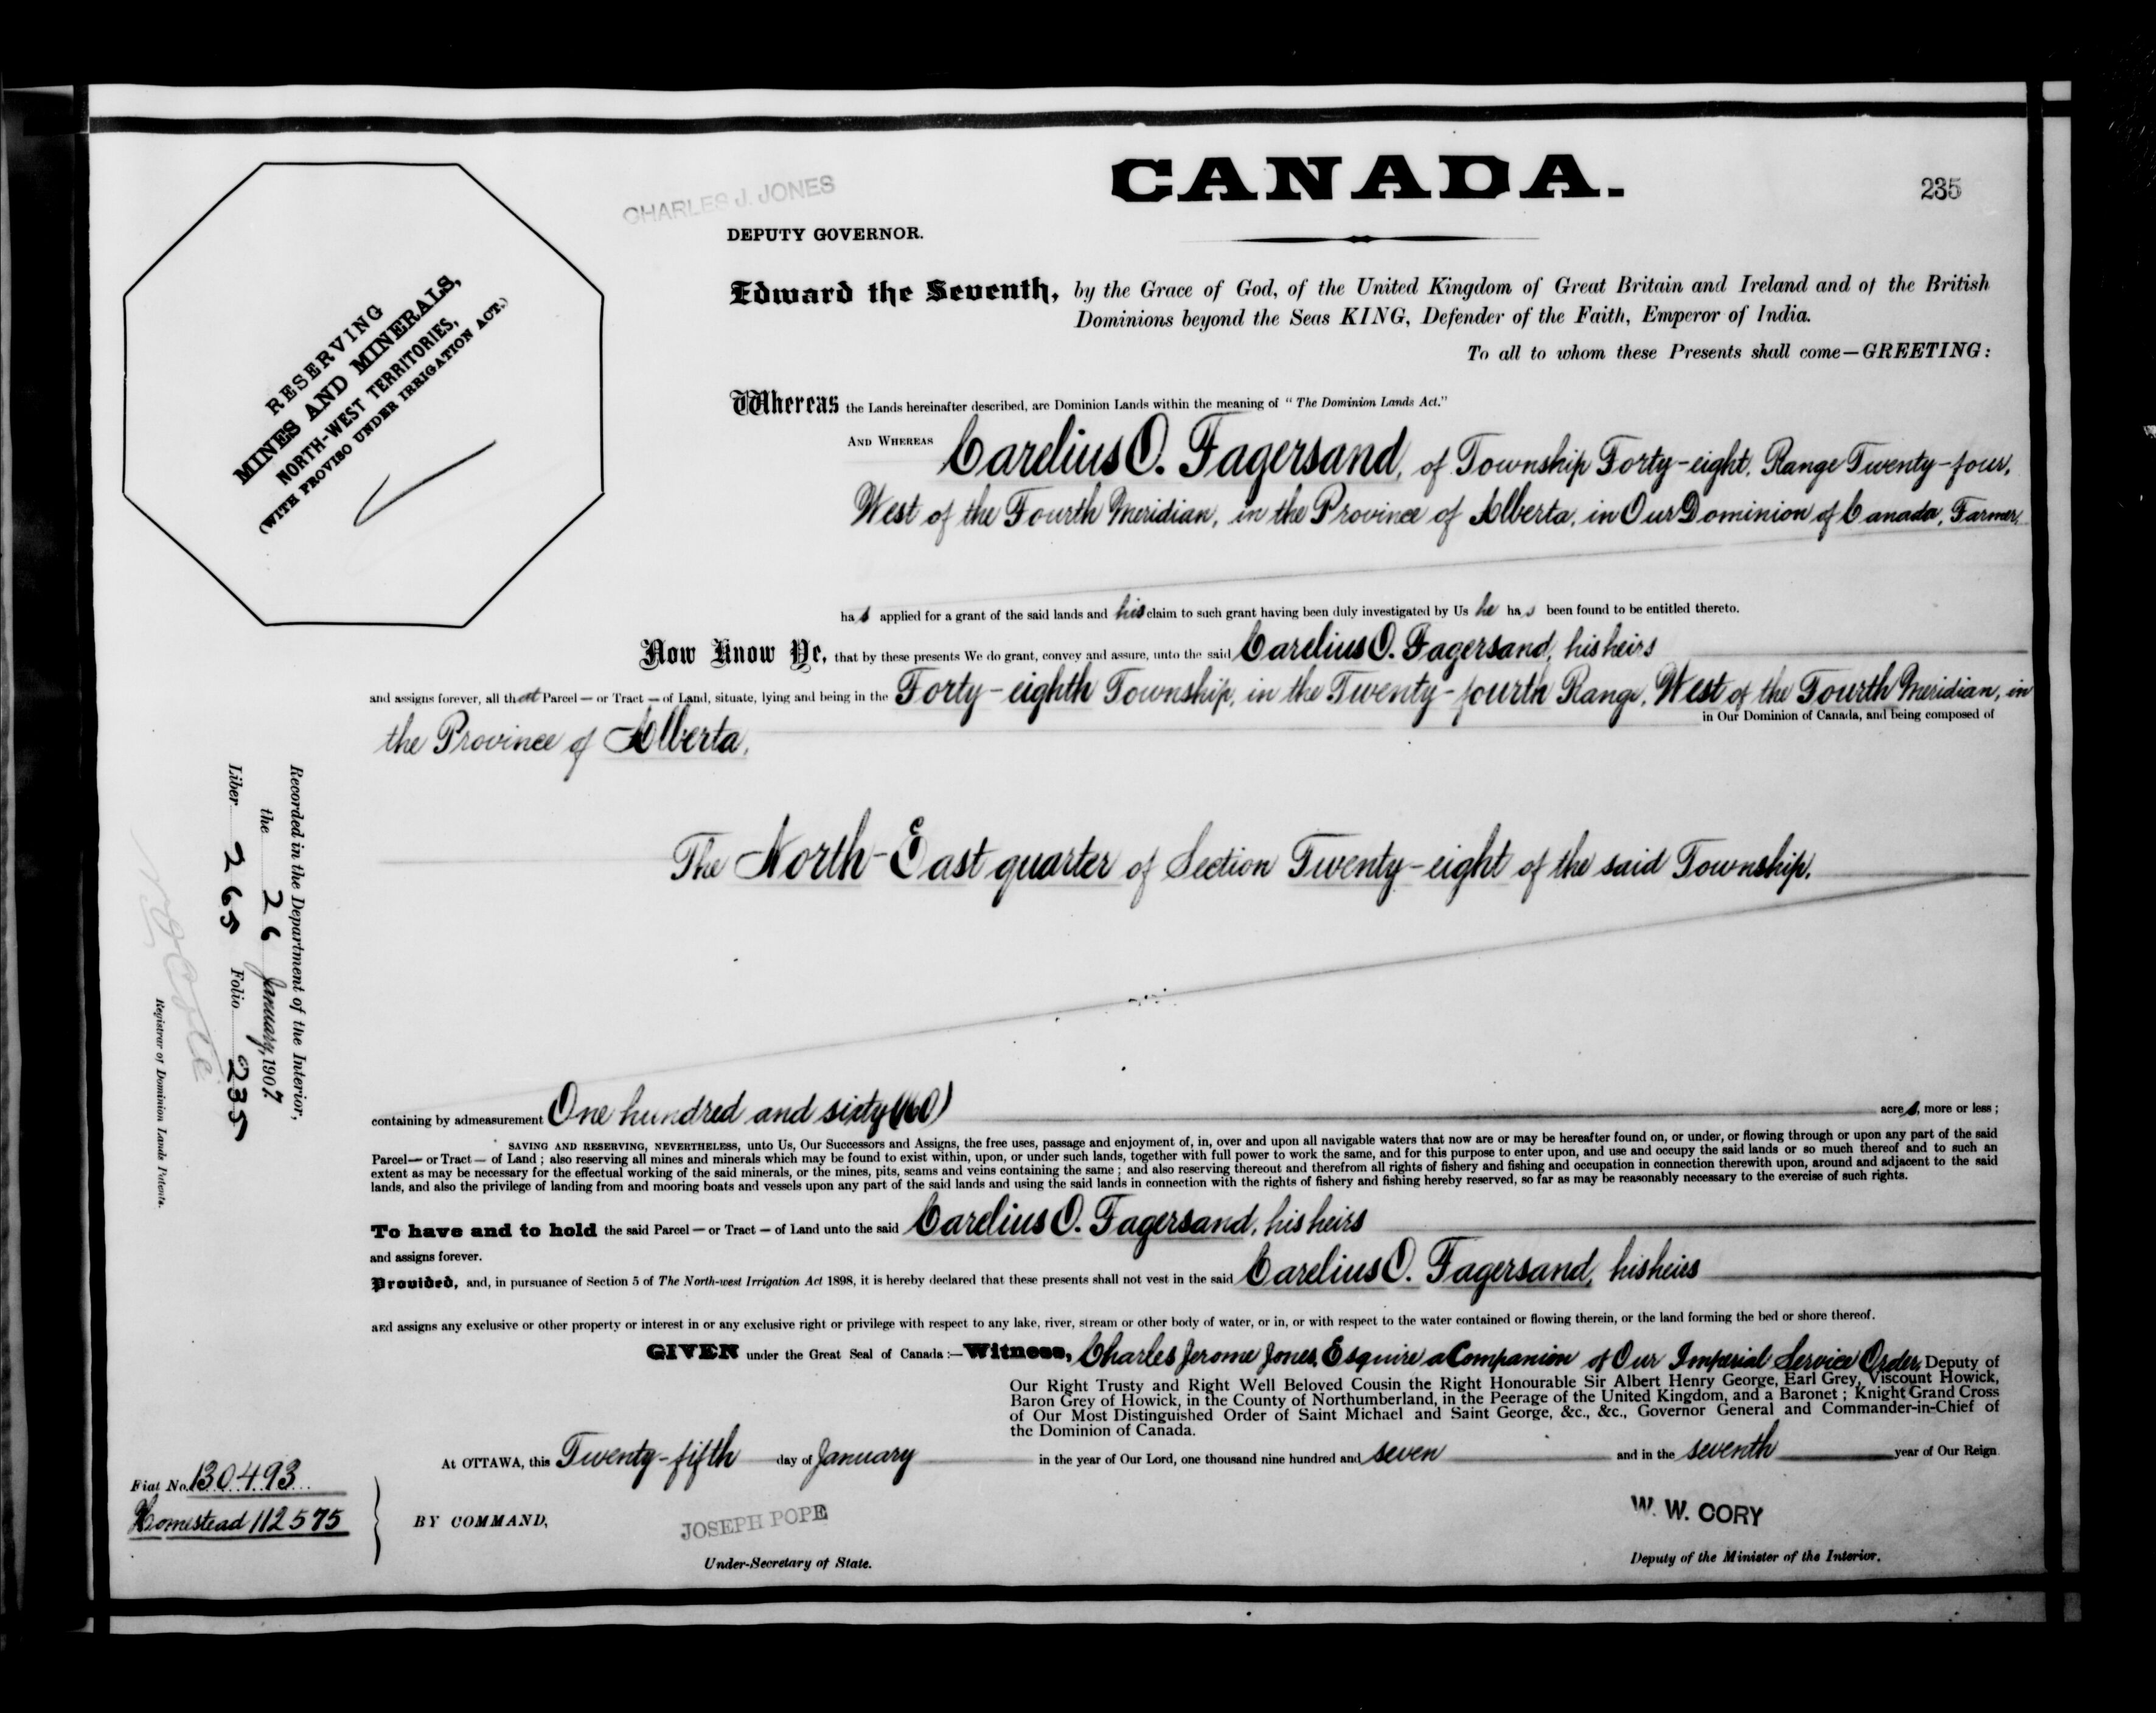 CANADA.
235
CHARLES J. JONES
DEPUTY GOVERNOR.
RESERVING
MINES AND MINERALS,
NORTH-WEST TERRITORIES,
(WITH PROVISO UNDER IRRIGATION ACT.)
Edward the Seventh, by the Grace of God, of the United Kingdom of Great Britain and Ireland and of the British
Dominions beyond the Seas KING, Defender of the Faith, Emperor of India.
To all to whom these Presents shall come—GREETING:
Whereas the Lands hereinafter described, are Dominion Lands within the meaning of "The Dominion Lands Act."
AND WHEREAS Carelius O. Fagersand, of Township Forty-eight, Range Twenty-four,
West of the Fourth Meridian, in the Province of Alberta, in Our Dominion of Canada, Farmer,
has applied for a grant of the said lands and his claim to such grant having been duly investigated by Us he has been found to be entitled thereto.
Now Know Ye, that by these presents We do grant, convey and assure, unto the said Carelius O. Fagersand, his heirs
and assigns forever, all that Parcel — or Tract — of Land, situate, lying and being in the Forty-eighth Township, in the Twenty-fourth Range, West of the Fourth Meridian, in
in Our Dominion of Canada, and being composed of
the Province of Alberta,
The North-East quarter of Section Twenty-eight of the said Township,
Recorded in the Department of the Interior,
the 26 January, 1907
Liber 265 Folio 235
Registrar of Dominion Lands Patents.
containing by admeasurement One hundred and sixty (160) acres, more or less;
SAVING AND RESERVING, NEVERTHELESS, unto Us, Our Successors and Assigns, the free uses, passage and enjoyment of, in, over and upon all navigable waters that now are or may be hereafter found on, or under, or flowing through or upon any part of the said
Parcel— or Tract — of Land ; also reserving all mines and minerals which may be found to exist within, upon, or under such lands, together with full power to work the same, and for this purpose to enter upon, and use and occupy the said lands or so much thereof and to such an
extent as may be necessary for the effectual working of the said minerals, or the mines, pits, seams and veins containing the same ; and also reserving thereout and therefrom all rights of fishery and fishing and occupation in connection therewith upon, around and adjacent to the said
lands, and also the privilege of landing from and mooring boats and vessels upon any part of the said lands and using the said lands in connection with the rights of fishery and fishing hereby reserved, so far as may be reasonably necessary to the exercise of such rights.
To have and to hold the said Parcel — or Tract — of Land unto the said Carelius O. Fagersand, his heirs
and assigns forever.
Provided, and, in pursuance of Section 5 of The North-west Irrigation Act 1898, it is hereby declared that these presents shall not vest in the said Carelius O. Fagersand, his heirs
and assigns any exclusive or other property or interest in or any exclusive right or privilege with respect to any lake, river, stream or other body of water, or in, or with respect to the water contained or flowing therein, or the land forming the bed or shore thereof.
GIVEN under the Great Seal of Canada :—Witness, Charles Jerome Jones, Esquire a Companion of Our Imperial Service Order, Deputy of
Our Right Trusty and Right Well Beloved Cousin the Right Honourable Sir Albert Henry George, Earl Grey, Viscount Howick,
Baron Grey of Howick, in the County of Northumberland, in the Peerage of the United Kingdom, and a Baronet ; Knight Grand Cross
of Our Most Distinguished Order of Saint Michael and Saint George, &c., &c., Governor General and Commander-in-Chief of
the Dominion of Canada.
At OTTAWA, this Twenty-fifth day of January in the year of Our Lord, one thousand nine hundred and seven and in the seventh year of Our Reign
Fiat No. 130493
Homestead 112575
BY COMMAND,
JOSEPH POPE
Under-Secretary of State.
W. W. CORY
Deputy of the Minister of the Interior.